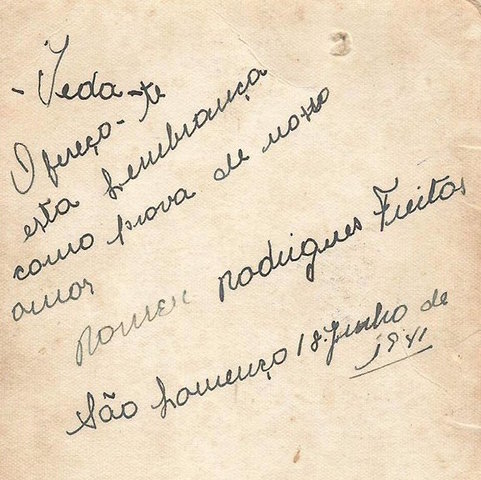 - Ieda -
Ofereço-te
esta lembrança
como prova de nosso
amor
Romeu Rodrigues Freitas
São Lourenço 18 Junho de
1941